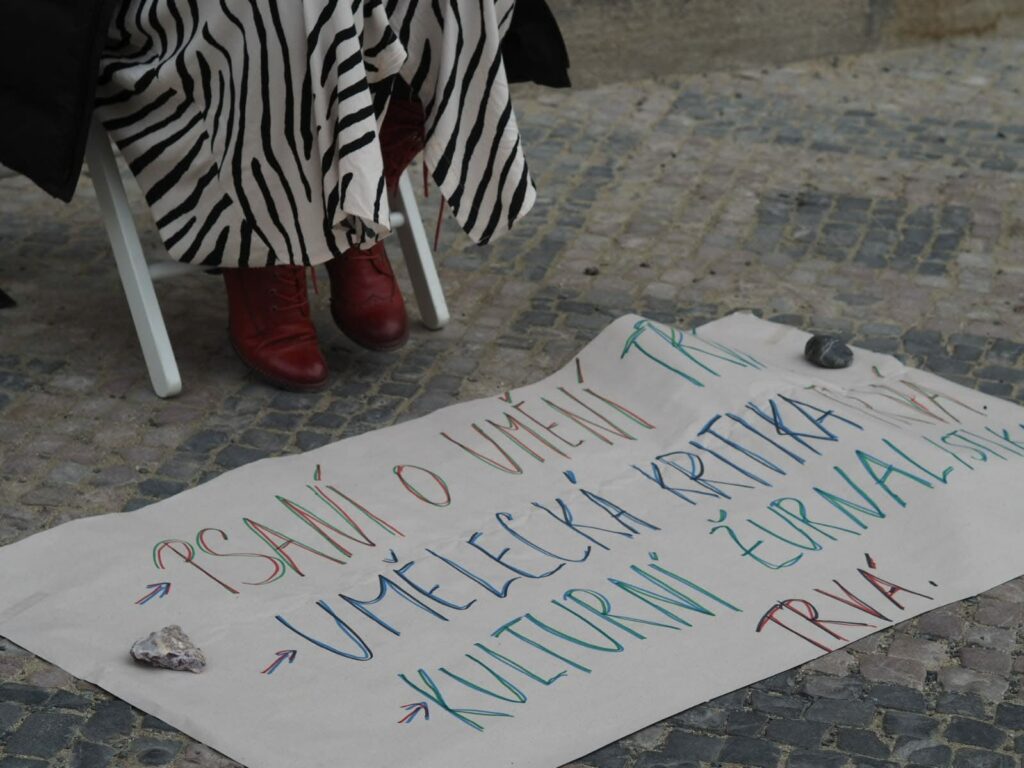 PSANÍ O UMĚNÍ TRV
UMĚLECKÁ KRITIKA TRVÁ
KULTURNÍ ŽURNALISTIK
TRVÁ.